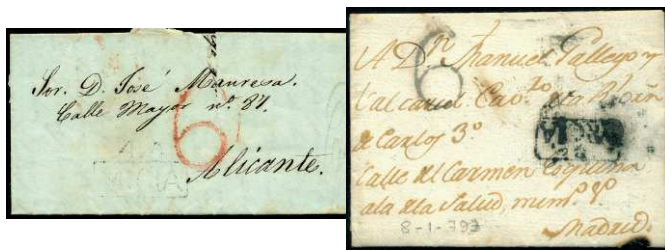 Sor. D. José Mauresa.
Calle Mayor nº 87.
6
Alicante.
6
A Dn. Manuel Vallejo y
Alcaned Cavro.
de Carlos 3º
Calle del Carmen esquina
a la de la Salud, num.º 9º
Madrid.
8-1-793